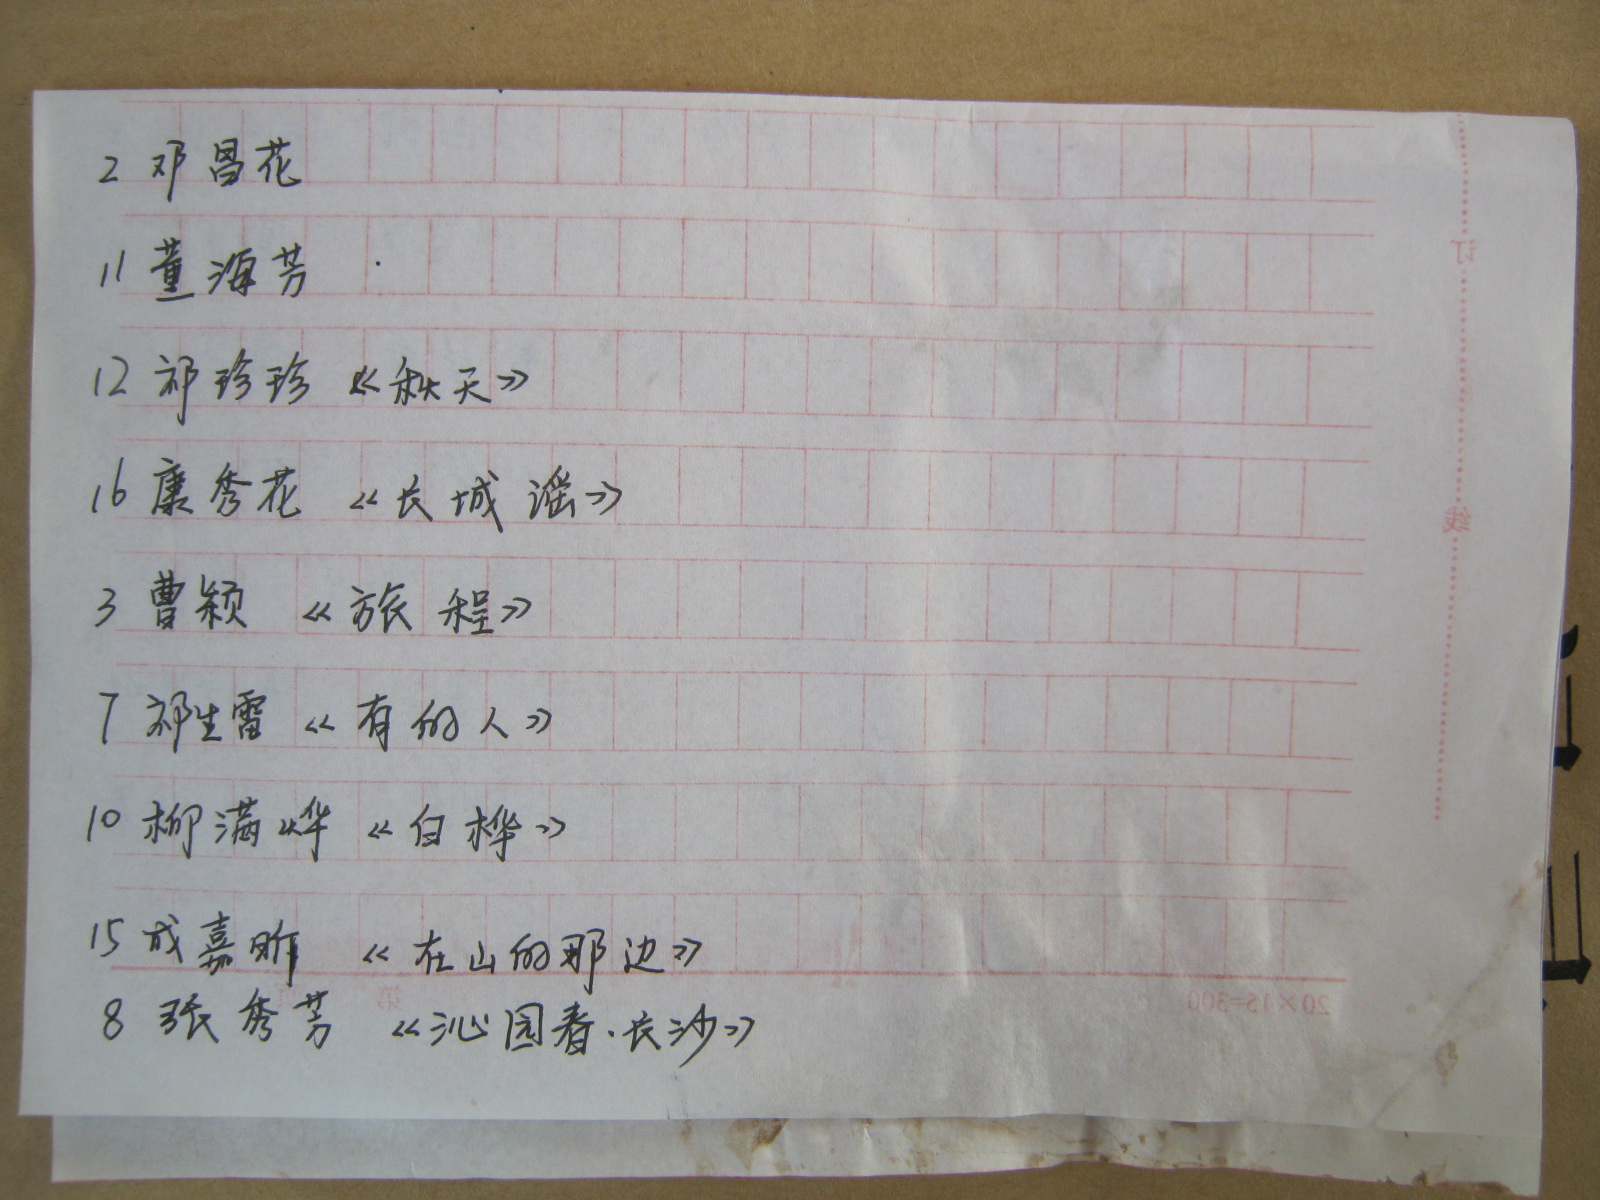 2 邓昌花
11 董海芳
12 祁珍珍 《秋天》
16 康秀花 《长城谣》
3 曹颖 《旅程》
7 祁生雷 《有的人》
10 柳满烨 《白桦》
15 成嘉昕 《在山的那边》
8 张秀芳 《沁园春·长沙》
订
线
第
20×15=300